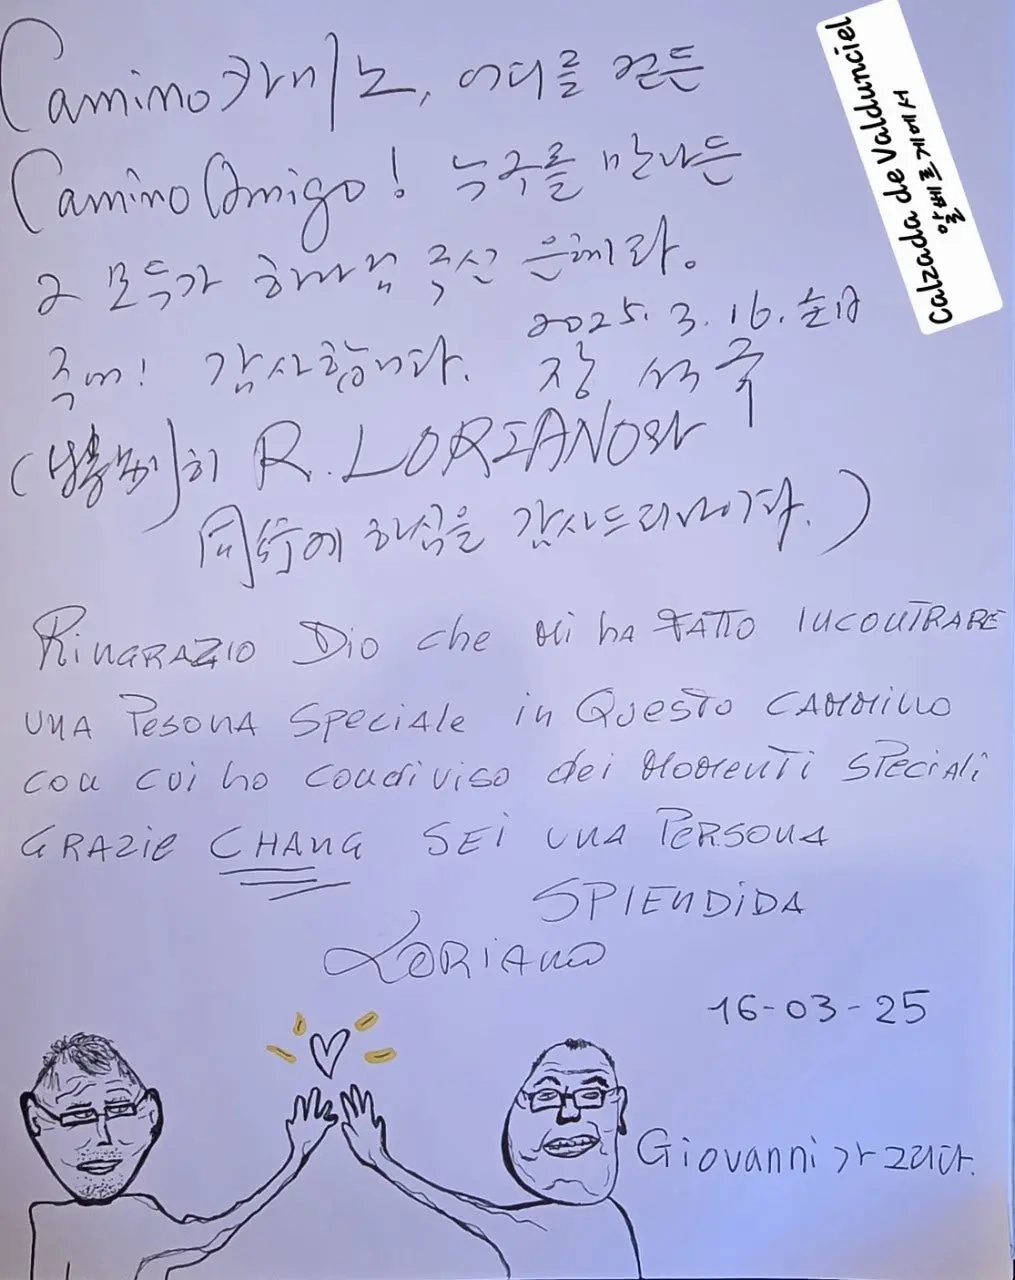 Camino카미노, 어디를 걷든
Camino Amigo! 누구를 만나든
그 모두가 하나님 주신 은혜라.
주여! 감사합니다. 2025. 3. 16.
장
히 R. LORIANO와
同行에 하심을 감사드리나이다.)
RINGRAZIO DIO che Mi ha FATTO INCONTRARE
UNA PESONA SPECIALE in QUESTO CAMMINO
CON CUI ho CONDIVISO dei MOMENTI SPECIALI
GRAZIE CHANG SEI UNA PERSONA
SPLENDIDA
LORIANO
16-03-25
Giovanni가 그리다.
Calzada de Valdunciel
알베르게에서